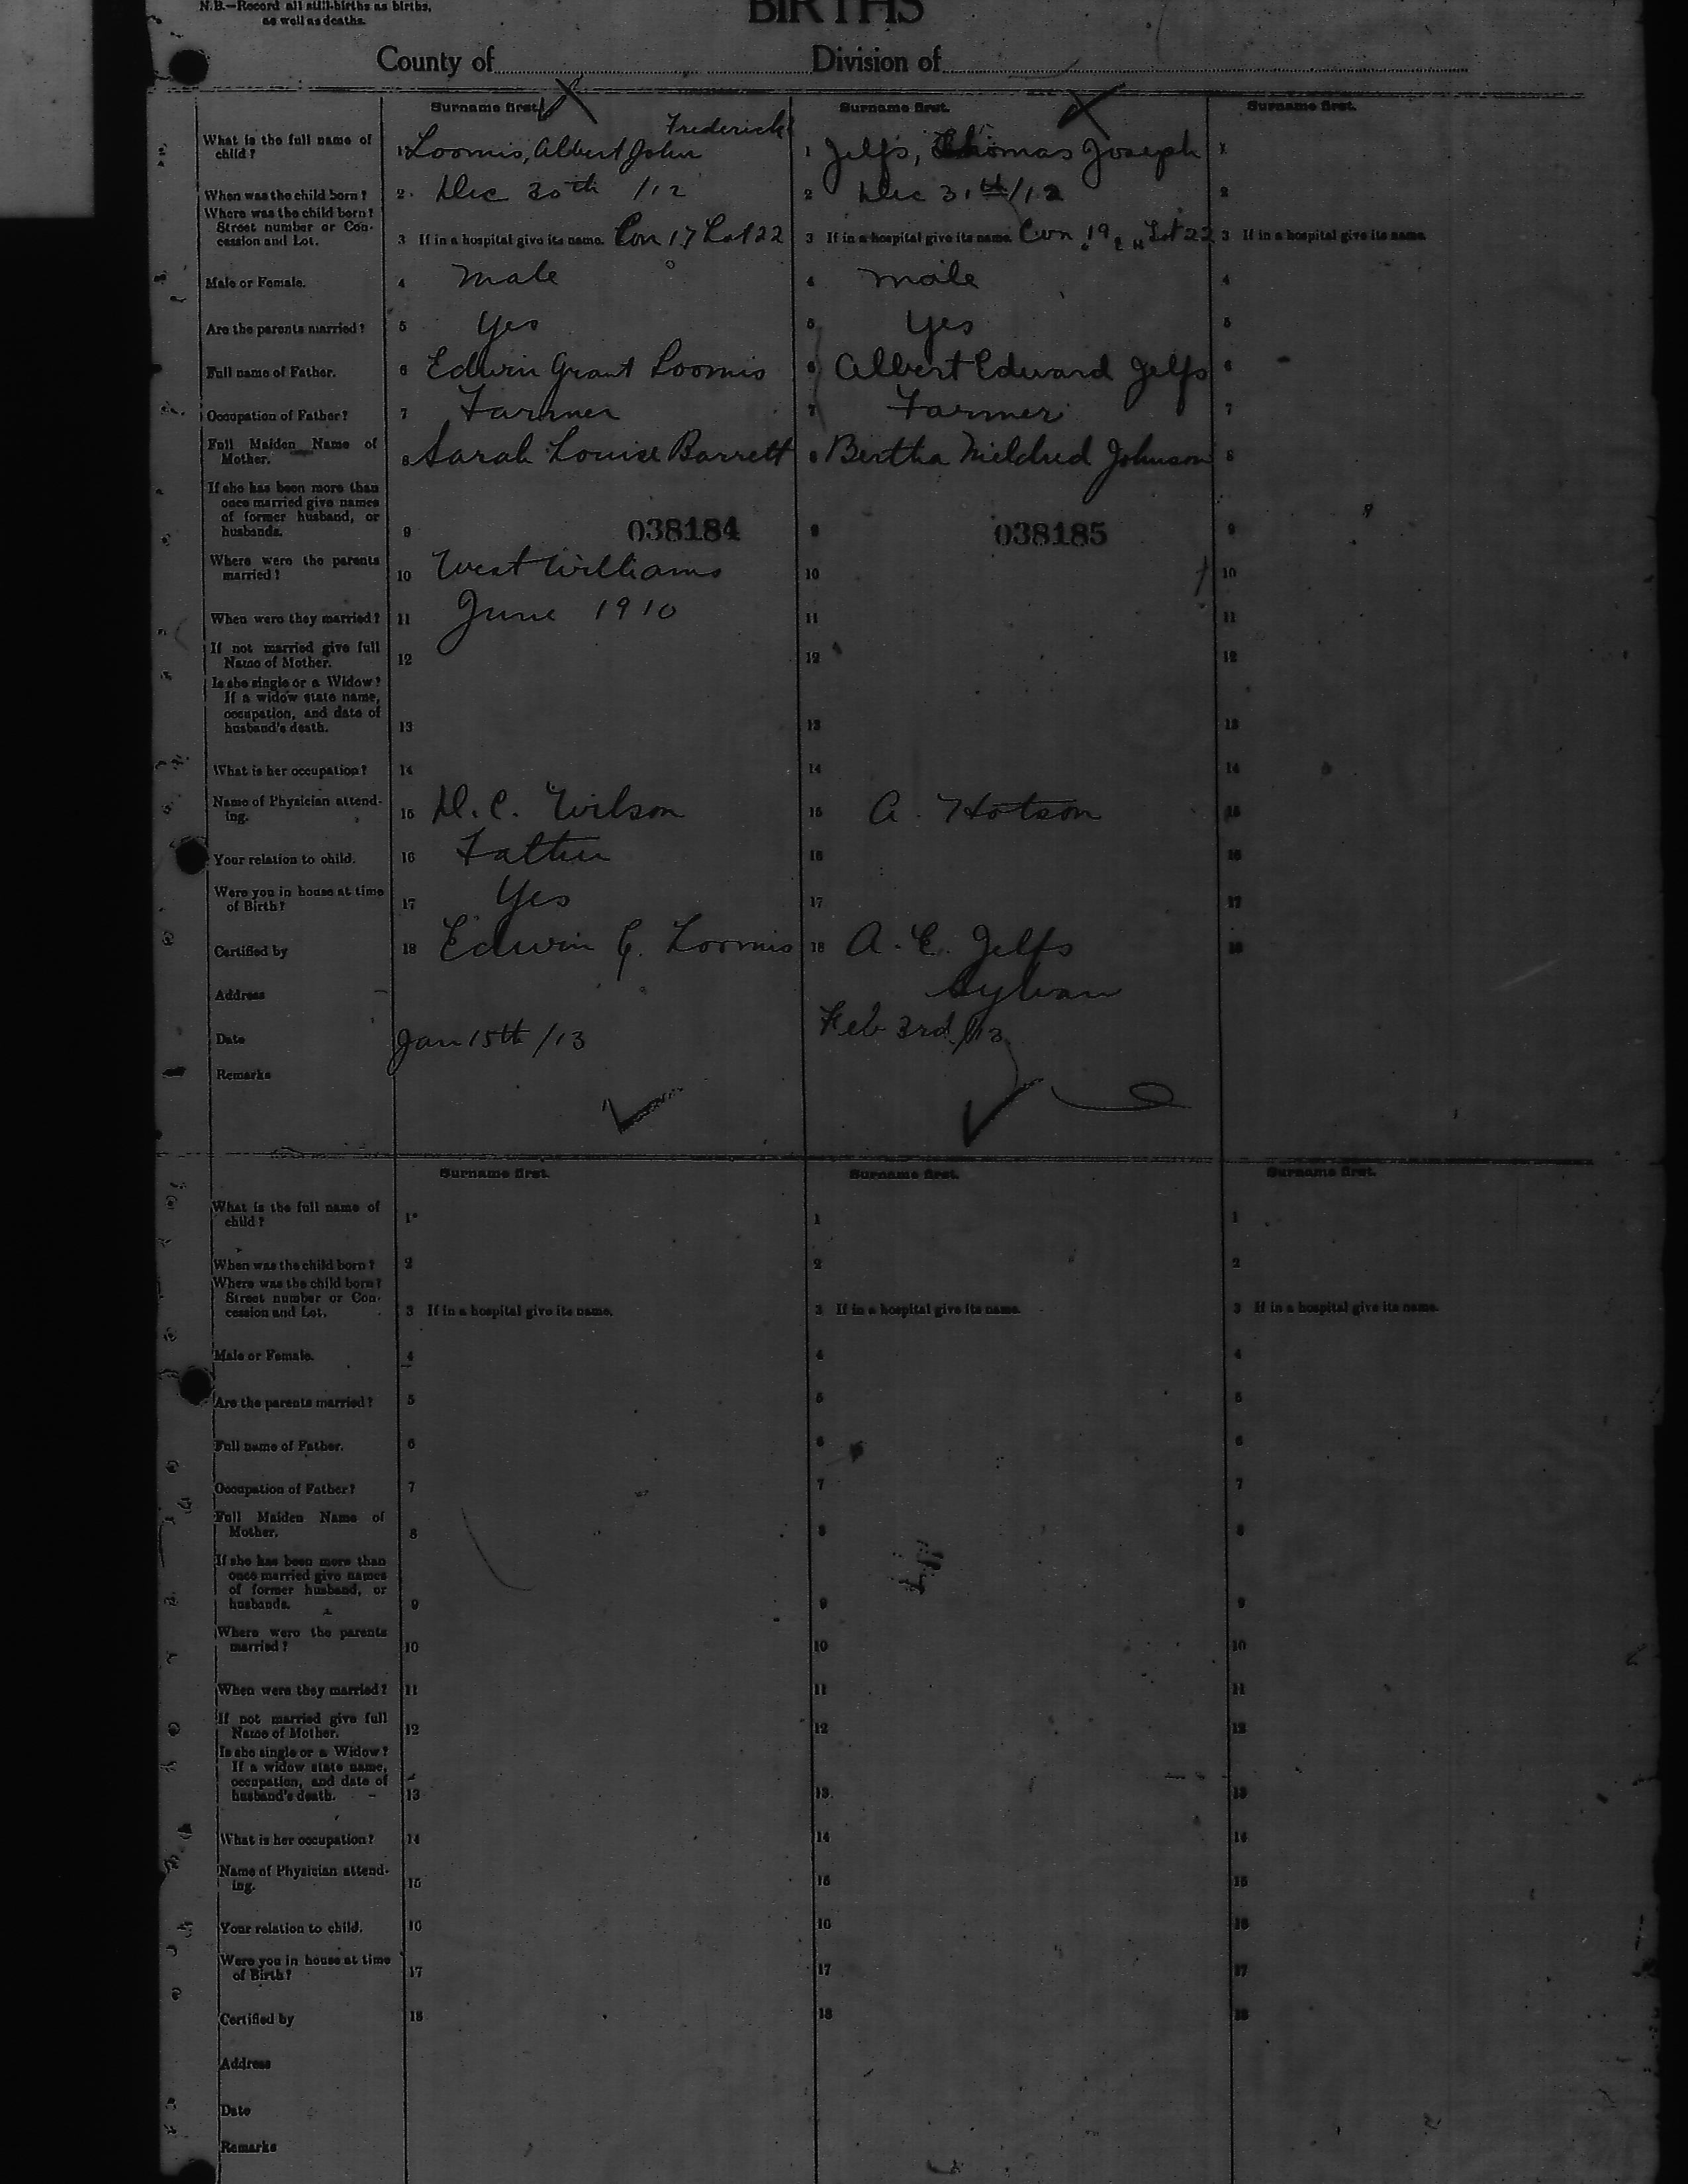 N.B.—Record all still-births as births,
as well as deaths.
BIRTHS
County of
Division of
Surname first.
Surname first.
Surname first.
What is the full name of
child?
1 Loomis, Albert John Frederick
1 Jelfs, Thomas Joseph
1
When was the child born?
2 Dec 30th /12
2 Dec 31st/12
2
Where was the child born?
Street number or Con-
cession and Lot.
3 If in a hospital give its name. Con 17 Lot 22
3 If in a hospital give its name. Con 19 Lot 22
3 If in a hospital give its name.
Male or Female.
4 male
4 male
4
Are the parents married?
5 Yes
5 Yes
5
Full name of Father.
6 Edwin Grant Loomis
6 Albert Edward Jelfs
6
Occupation of Father?
7 Farmer
7 Farmer
7
Full Maiden Name of
Mother.
8 Sarah Louise Barrett
8 Bertha Mildred Johnson
8
If she has been more than
once married give names
of former husband, or
husbands.
9 038184
9 038185
9
Where were the parents
married?
10 West Williams
10
10
When were they married?
11 June 1910
11
11
If not married give full
Name of Mother.
12
12
12
Is she single or a Widow?
If a widow state name,
occupation, and date of
husband's death.
13
13
13
What is her occupation?
14
14
14
Name of Physician attend-
ing.
15 D. C. Wilson
15 A. Hotson
15
Your relation to child.
16 Father
16
16
Were you in house at time
of Birth?
17 Yes
17
17
Certified by
18 Edwin G. Loomis
18 A. E. Jelfs
18
Address
Sylvan
Date
Jan 15th /13
Feb 3rd /13
Remarks
Surname first.
Surname first.
Surname first.
What is the full name of
child?
1
1
1
When was the child born?
2
2
2
Where was the child born?
Street number or Con-
cession and Lot.
3 If in a hospital give its name.
3 If in a hospital give its name.
3 If in a hospital give its name.
Male or Female.
4
4
4
Are the parents married?
5
5
5
Full name of Father.
6
6
6
Occupation of Father?
7
7
7
Full Maiden Name of
Mother.
8
8
8
If she has been more than
once married give names
of former husband, or
husbands.
9
9
9
Where were the parents
married?
10
10
10
When were they married?
11
11
11
If not married give full
Name of Mother.
12
12
12
Is she single or a Widow?
If a widow state name,
occupation, and date of
husband's death.
13
13
13
What is her occupation?
14
14
14
Name of Physician attend-
ing.
15
15
15
Your relation to child.
16
16
16
Were you in house at time
of Birth?
17
17
17
Certified by
18
18
18
Address
Date
Remarks